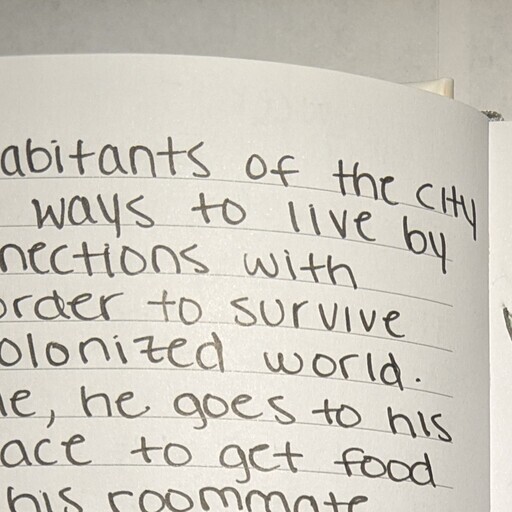 abitants of the city
ways to live by
nections with
order to survive
olonized world.
le, he goes to his
ace to get food
his roommate